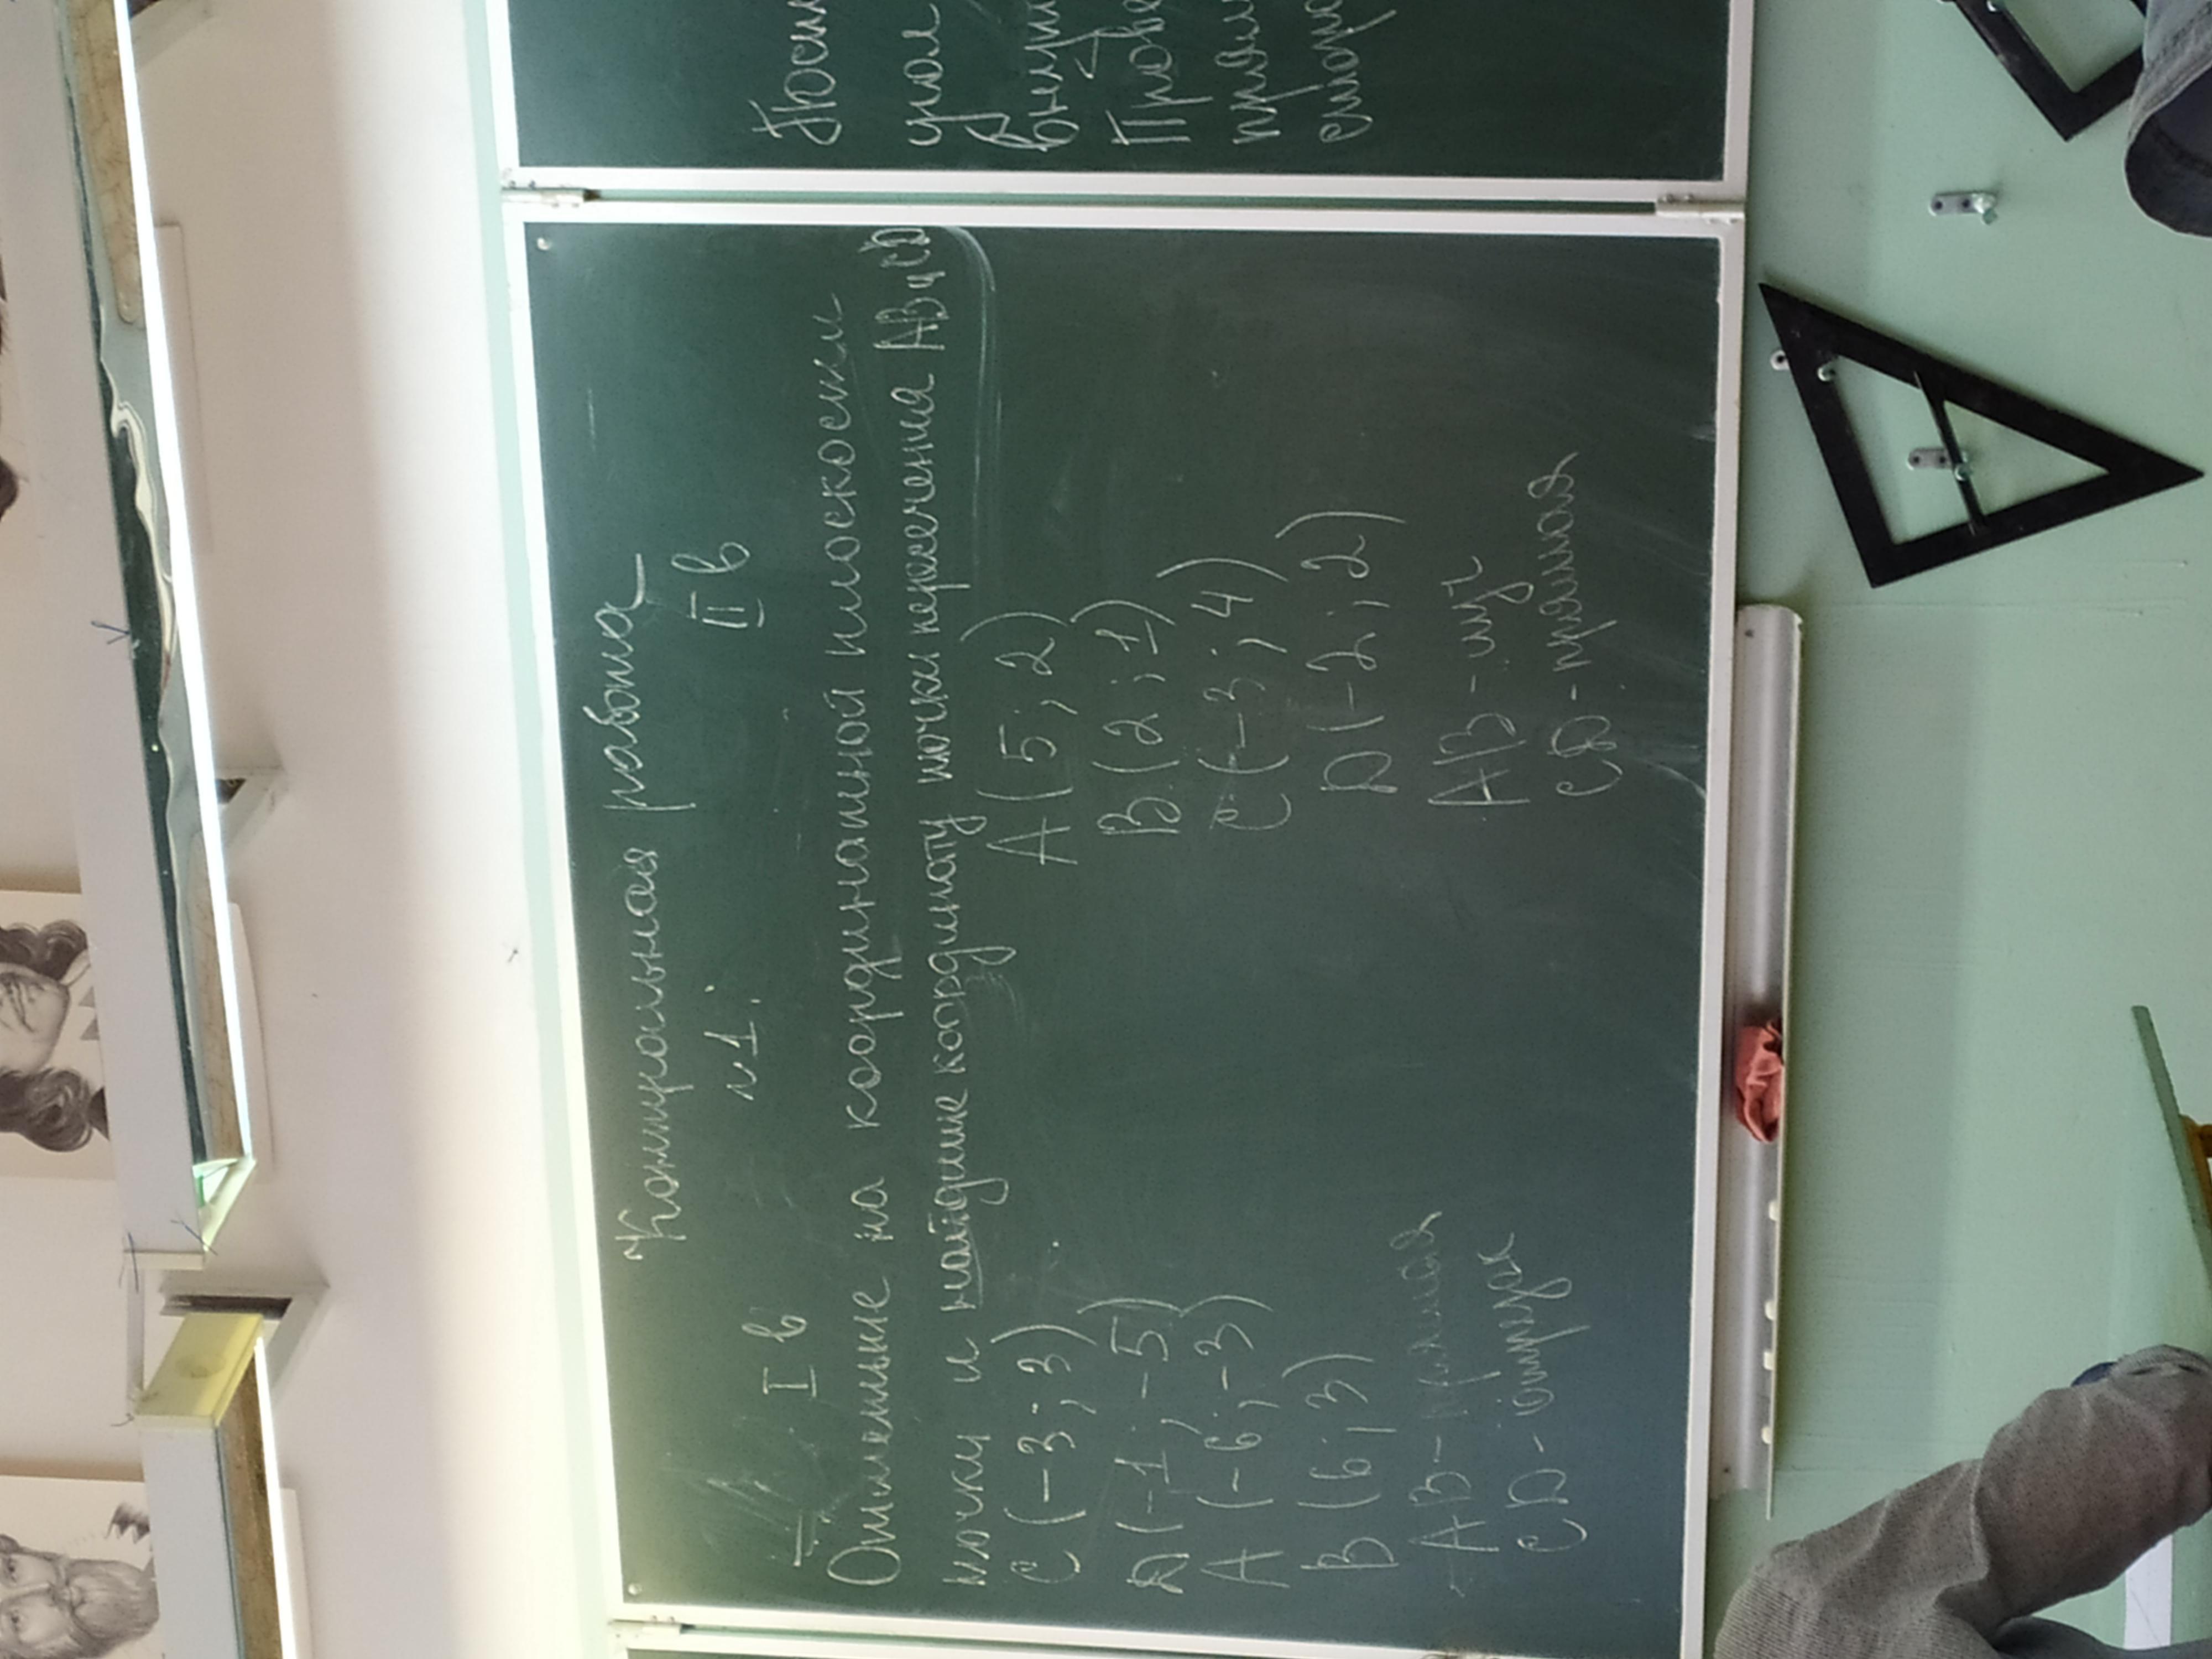 Контрольная работа
I в
№1.
II в
Отметьте на координатной плоскости
точки и найдите координату точки пересечения AB и CD
C (-3; 3)
D (-1; -5)
A (-6; -3)
B (6; 3)
AB - прямая
CD - отрезок
A (5; 2)
B (2; 1)
C (-3; 4)
D (-2; 2)
AB - луч
CD - прямая
угол